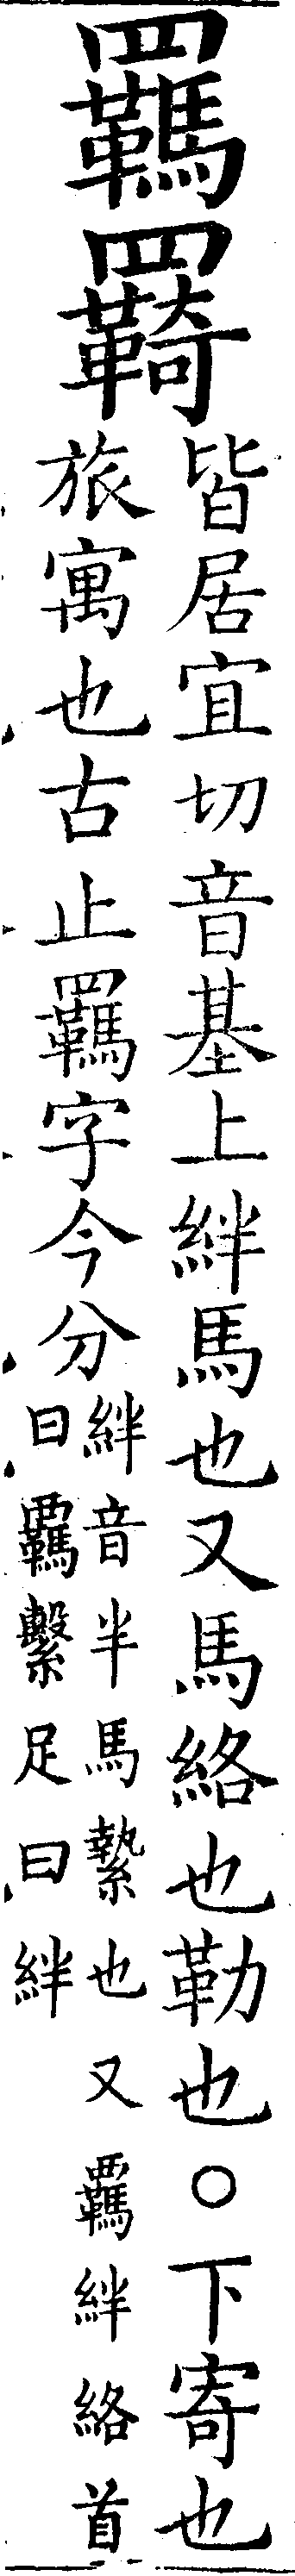 羈羇
皆居宜切音基上絆馬也又馬絡也勒也○下寄也
旅寓也古止羈字今分
絆音半馬縶也又羈絆絡首
曰羈繫足曰絆